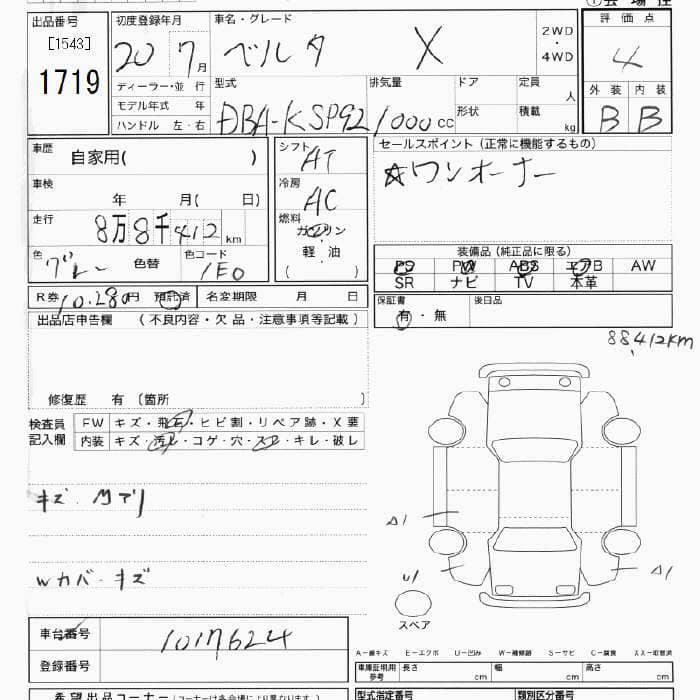 出品番号
[1543]
1719
初度登録年月
20 7月
車名・グレード
ベルタ X
2WD
・
4WD
評価点
4
外装 内装
B B
ディーラー・並行
モデル年式 年
ハンドル 左・右
型式
DBA-KSP92
排気量
1000cc
ドア
形状
定員
人
積載
kg
車歴 自家用( )
車検
年 月( 日)
走行
8万8千412km
色 グレー 色替
色コード
1E0
シフト
AT
冷房
AC
燃料
ガソリン
軽・油
( )
セールスポイント(正常に機能するもの)
☆ワンオーナー
装備品(純正品に限る)
PS PW ABS エアB AW
SR ナビ TV 本革
R券 10,280円 預託済 名変期限 月 日
保証書
有・無
後日品
出品店申告欄 (不良内容・欠品・注意事項等記載)
修復歴 有(箇所 )
88,412km
検査員
記入欄
FW キズ・飛石・ヒビ割・リペア跡・X要
内装 キズ・汚レ・コゲ・穴・スレ・キレ・破レ
キズ・Mアリ
Wカバーキズ
A1
U1
A1
スペア
車台番号
1017624
登録番号
A-線キズ E-エクボ U-凹み W-補修跡 S-サビ C-腐食 XX-取替済
車庫証明用
参考
長さ cm
幅 cm
高さ cm
希望出品コーナー
型式指定番号
類別区分番号